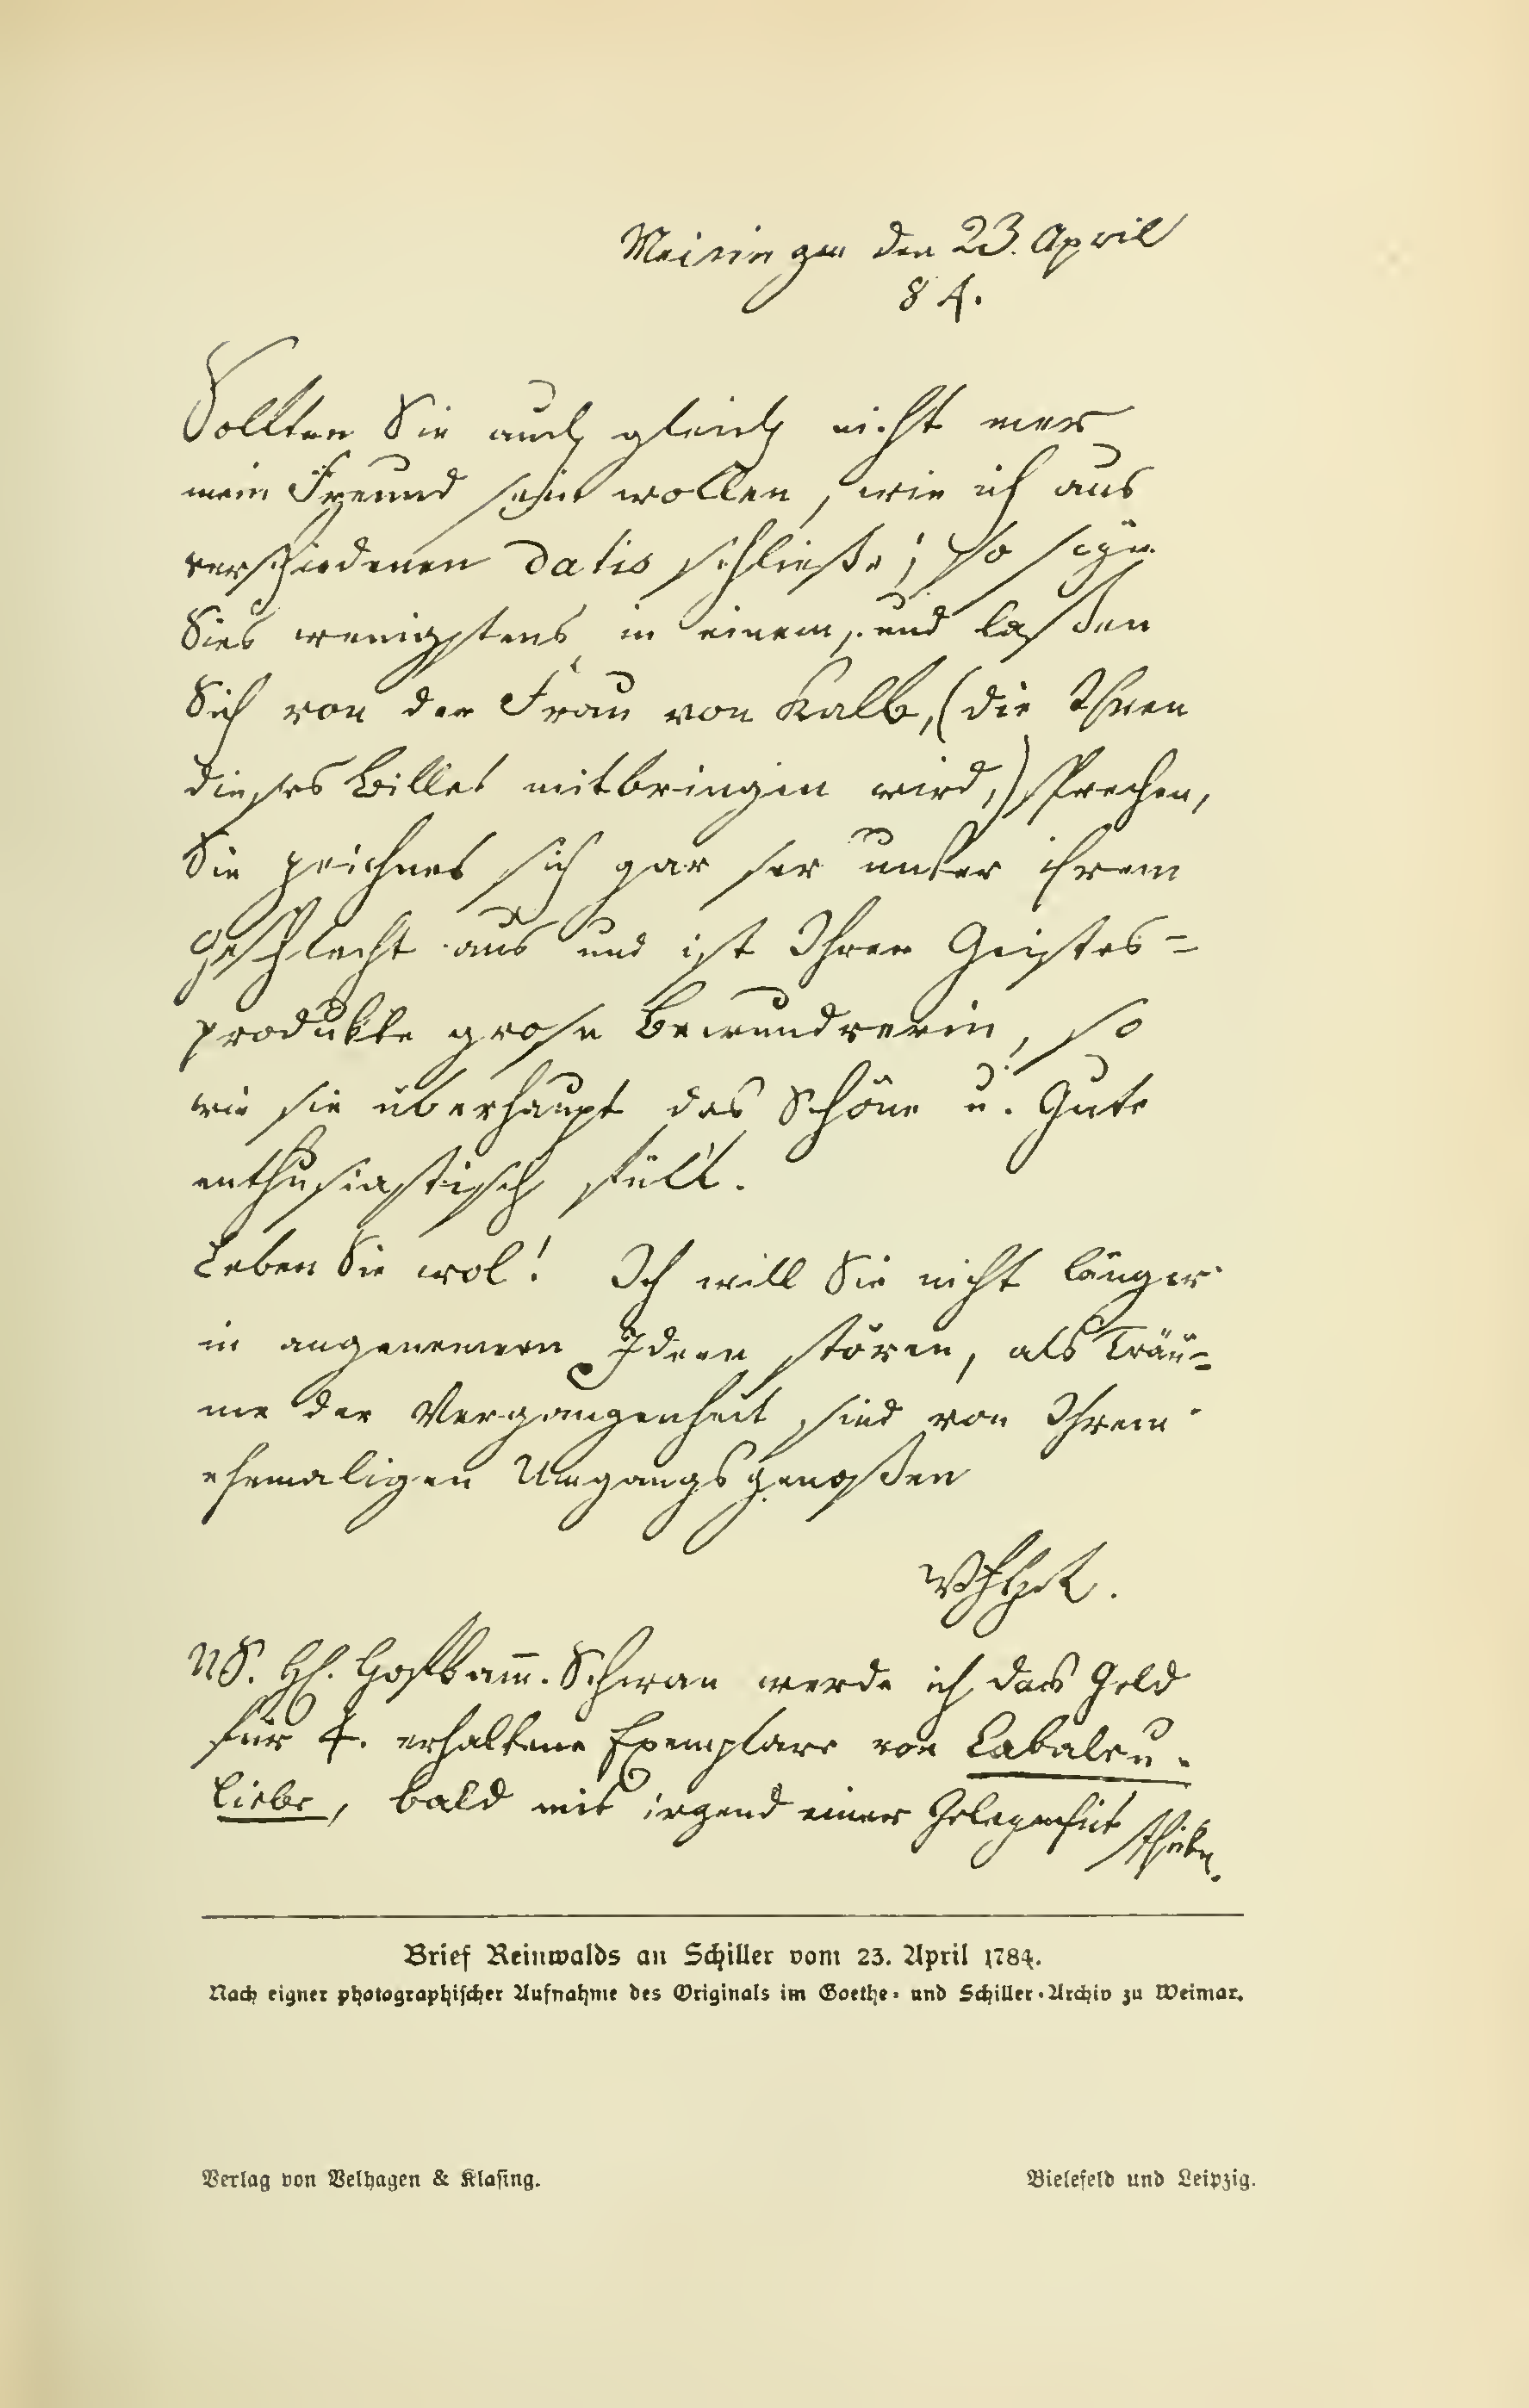 Meiningen den 23. April
84.
Sollten Sie auch gleich nicht mer
mein Freund seyn wollen, wie ich aus
verschiedenen datis schließe; so seyn
Sies wenigstens in einem, und laßen
Sich von der Frau von Kalb, (die Ihnen
dieses Billet mitbringen wird,) sprechen,
Sie zeichnet sich gar ser unter ihrem
Geschlecht aus und ist Ihrer Geistes=
produkte grose Bewundrerin, so
wie sie überhaupt das Schöne u. Gute
enthusiastisch fült.
Leben Sie wol! Ich will Sie nicht länger
in angenemern Ideen stören, als Träu=
me der Vergangenheit sind von Ihrem
ehemaligen Umgangsgenoßen
NS. Hℓ. Hofkam̅. Schwan werde ich das Geld
für 4. erhaltene Exemplare von Cabale u.
Liebe, bald mit irgend einer Gelegenheit
Brief Reinwalds an Schiller vom 23. April 1784.
Nach eigner photographischer Aufnahme des Originals im Goethe- und Schiller-Archiv zu Weimar.
Verlag von Velhagen & Klasing.
Bielefeld und Leipzig.